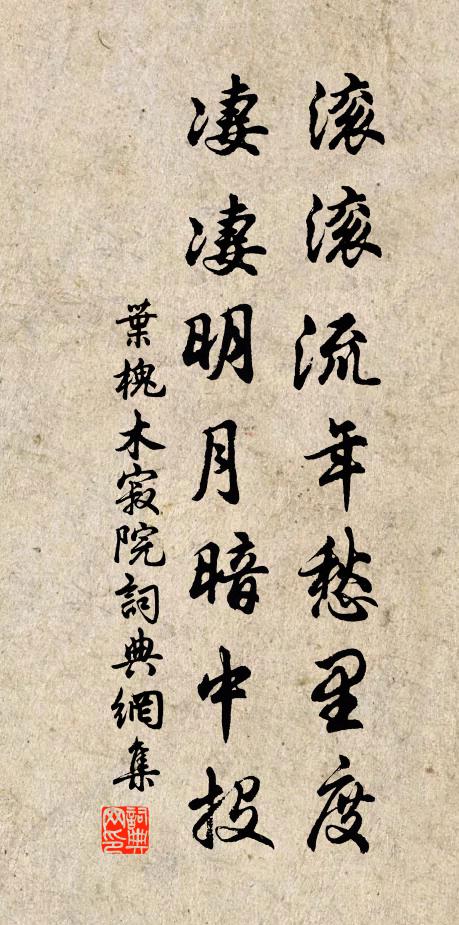 滚滚流年愁里度
凄凄明月暗中投
葉槐木寂院詞典網集
詞典网印